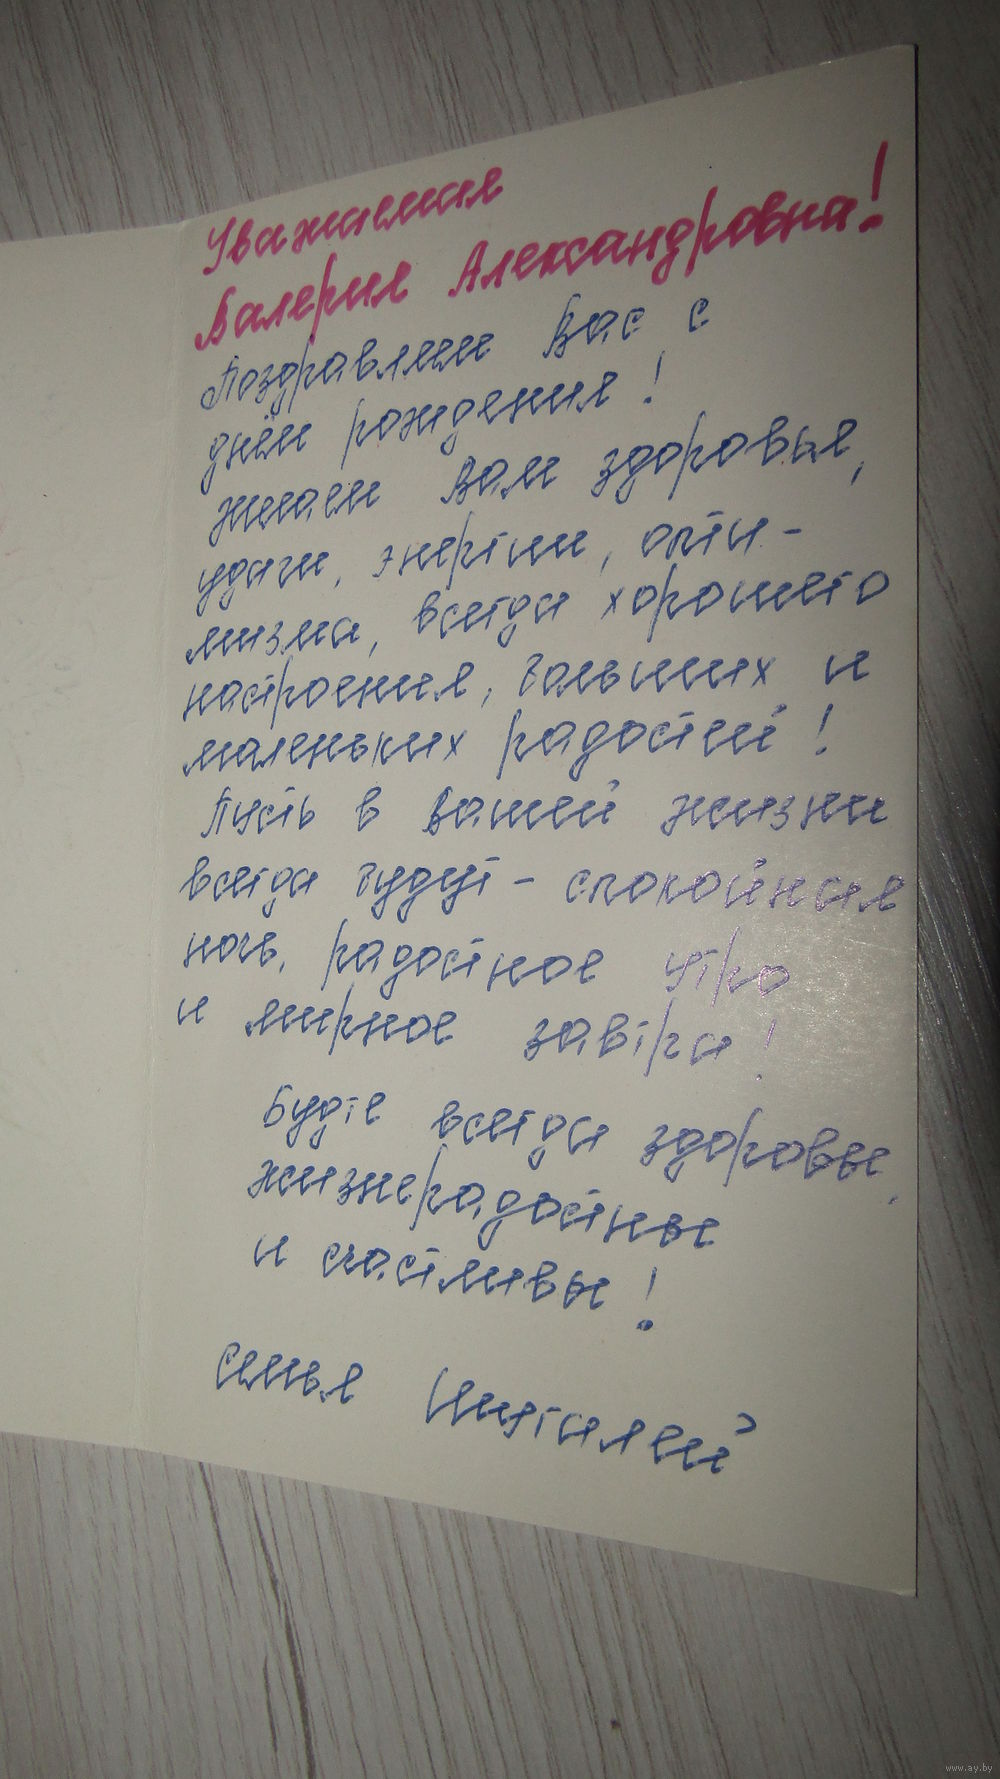 Уважаемая
Валерия Александровна!
Поздравляем Вас с
днём рождения!
Желаем Вам здоровья,
удачи, энергии, опти-
мизма, всегда хорошего
настроения, больших и
маленьких радостей!
Пусть в Вашей жизни
всегда будут - спокойная
ночь, радостное утро
и мирное завтра!
Будте всегда здоровы,
жизнерадостны
и счастливы!
семья
www.ay.by